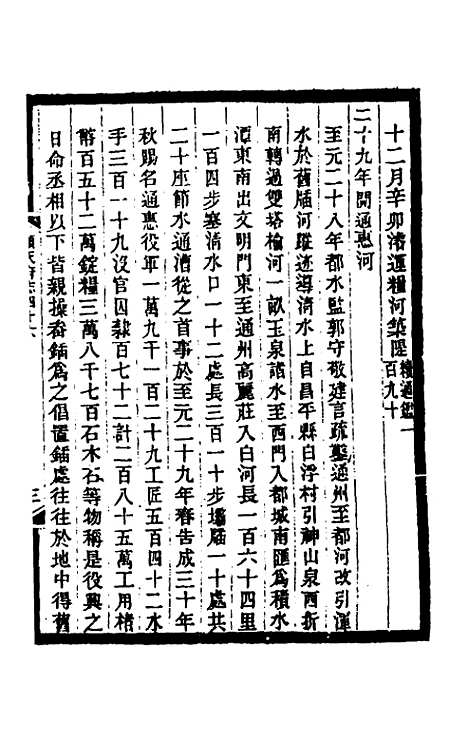 十二月辛卯濬運糧河築隄續通鑑一百九十
二十九年開通惠河
至元二十八年都水監郭守敬建言疏鑿通州至都河改引渾
水於舊牐河蹤迹導清水上自昌平縣白浮村引神山泉西折
南轉過雙塔榆河一畝玉泉諸水至西門入都城南匯爲積水
潭東南出文明門東至通州高麗莊入白河長一百六十四里
一百四步塞清水口一十二處長三百一十步壩牐一十處共
二十座節水通漕從之首事於至元二十九年春告成三十年
秋賜名通惠役軍一萬九千一百二十九工匠五百四十二水
手三百一十九沒官囚隸百七十二計二百八十五萬工用楮
幣百五十二萬錠糧三萬八千七百石木石等物稱是役興之
日命丞相以下皆親操畚鍤爲之倡置鍤處往往於地中得舊
順天府志四十六
三